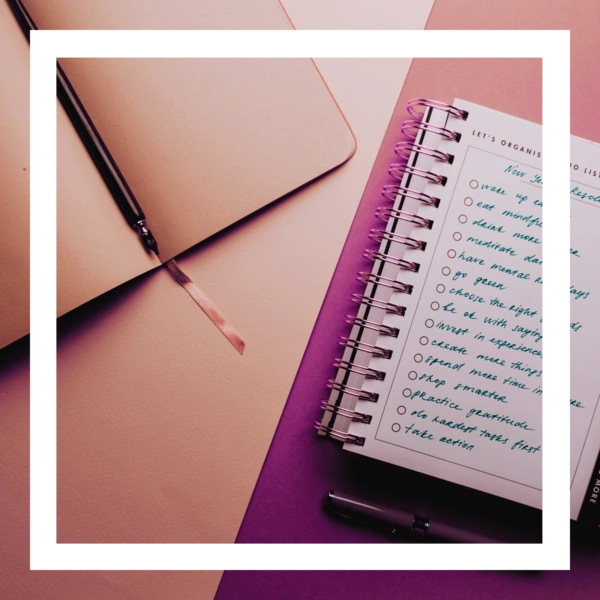 LET'S ORGANIS DO LIST
New Ye Resol
wake up ea
eat mindfu
drink more er
meditate da
have mental days
go green
choose the right ds
be ok with saying
invest in experience
create more things
spend more time in re
shop smarter
practice gratitude
do hardest tasks first
take action
MORE